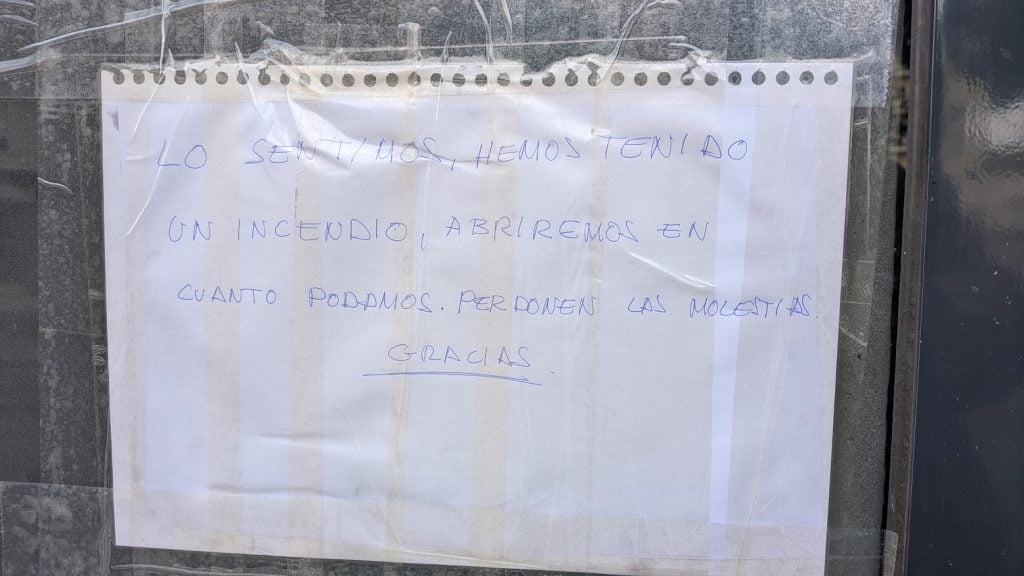 LO SENTIMOS, HEMOS TENIDO
UN INCENDIO, ABRIREMOS EN
CUANTO PODAMOS. PERDONEN LAS MOLESTIAS.
GRACIAS.